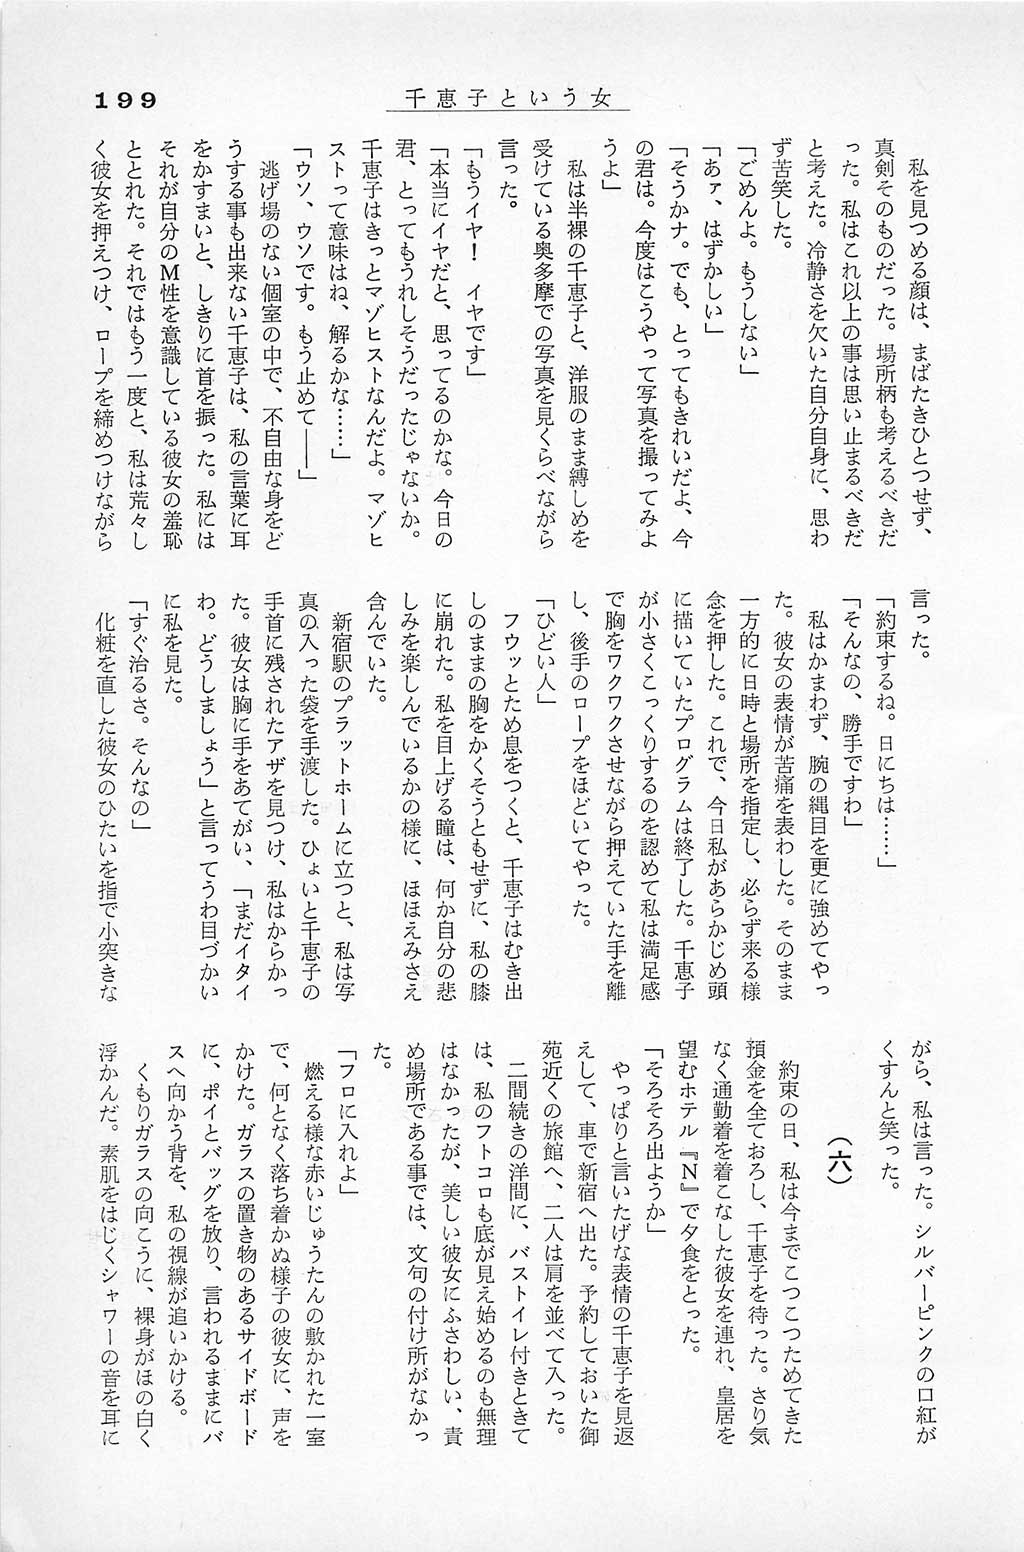 199
千恵子という女
　私を見つめる顔は、まばたきひとつせず、
真剣そのものだった。場所柄も考えるべきだ
った。私はこれ以上の事は思い止まるべきだ
と考えた。冷静さを欠いた自分自身に、思わ
ず苦笑した。
「ごめんよ。もうしない」
「あァ、はずかしい」
「そうかナ。でも、とってもきれいだよ、今
の君は。今度はこうやって写真を撮ってみよ
うよ」
　私は半裸の千恵子と、洋服のまま縛しめを
受けている奥多摩での写真を見くらべながら
言った。
「もうイヤ！　イヤです」
「本当にイヤだと、思ってるのかな。今日の
君、とってもうれしそうだったじゃないか。
千恵子はきっとマゾヒストなんだよ。マゾヒ
ストって意味はね、解るかな……」
「ウソ、ウソです。もう止めて――」
　逃げ場のない個室の中で、不自由な身をど
うする事も出来ない千恵子は、私の言葉に耳
をかすまいと、しきりに首を振った。私には
それが自分のM性を意識している彼女の羞恥
ととれた。それではもう一度と、私は荒々し
く彼女を押えつけ、ロープを締めつけながら
言った。
「約束するね。日にちは……」
「そんなの、勝手ですわ」
　私はかまわず、腕の縄目を更に強めてやっ
た。彼女の表情が苦痛を表わした。そのまま
一方的に日時と場所を指定し、必らず来る様
念を押した。これで、今日私があらかじめ頭
に描いていたプログラムは終了した。千恵子
が小さくこっくりするのを認めて私は満足感
で胸をワクワクさせながら押えていた手を離
し、後手のロープをほどいてやった。
「ひどい人」
　フウッとため息をつくと、千恵子はむき出
しのままの胸をかくそうともせずに、私の膝
に崩れた。私を目上げる瞳は、何か自分の悲
しみを楽しんでいるかの様に、ほほえみさえ
含んでいた。
　新宿駅のプラットホームに立つと、私は写
真の入った袋を手渡した。ひょいと千恵子の
手首に残されたアザを見つけ、私はからかっ
た。彼女は胸に手をあてがい、「まだイタイ
わ。どうしましょう」と言ってうわ目づかい
に私を見た。
「すぐ治るさ。そんなの」
　化粧を直した彼女のひたいを指で小突きな
がら、私は言った。シルバーピンクの口紅が
くすんと笑った。
（六）
　約束の日、私は今までこつこつためてきた
預金を全ておろし、千恵子を待った。さり気
なく通勤着を着こなした彼女を連れ、皇居を
望むホテル『N』で夕食をとった。
「そろそろ出ようか」
　やっぱりと言いたげな表情の千恵子を見返
えして、車で新宿へ出た。予約しておいた御
苑近くの旅館へ、二人は肩を並べて入った。
　二間続きの洋間に、バストイレ付きときて
は、私のフトコロも底が見え始めるのも無理
はなかったが、美しい彼女にふさわしい、責
め場所である事では、文句の付け所がなかっ
た。
「フロに入れよ」
　燃える様な赤いじゅうたんの敷かれた一室
で、何となく落ち着かぬ様子の彼女に、声を
かけた。ガラスの置き物のあるサイドボード
に、ポイとバッグを放り、言われるままにバ
スへ向かう背を、私の視線が追いかける。
　くもりガラスの向こうに、裸身がほの白く
浮かんだ。素肌をはじくシャワーの音を耳に